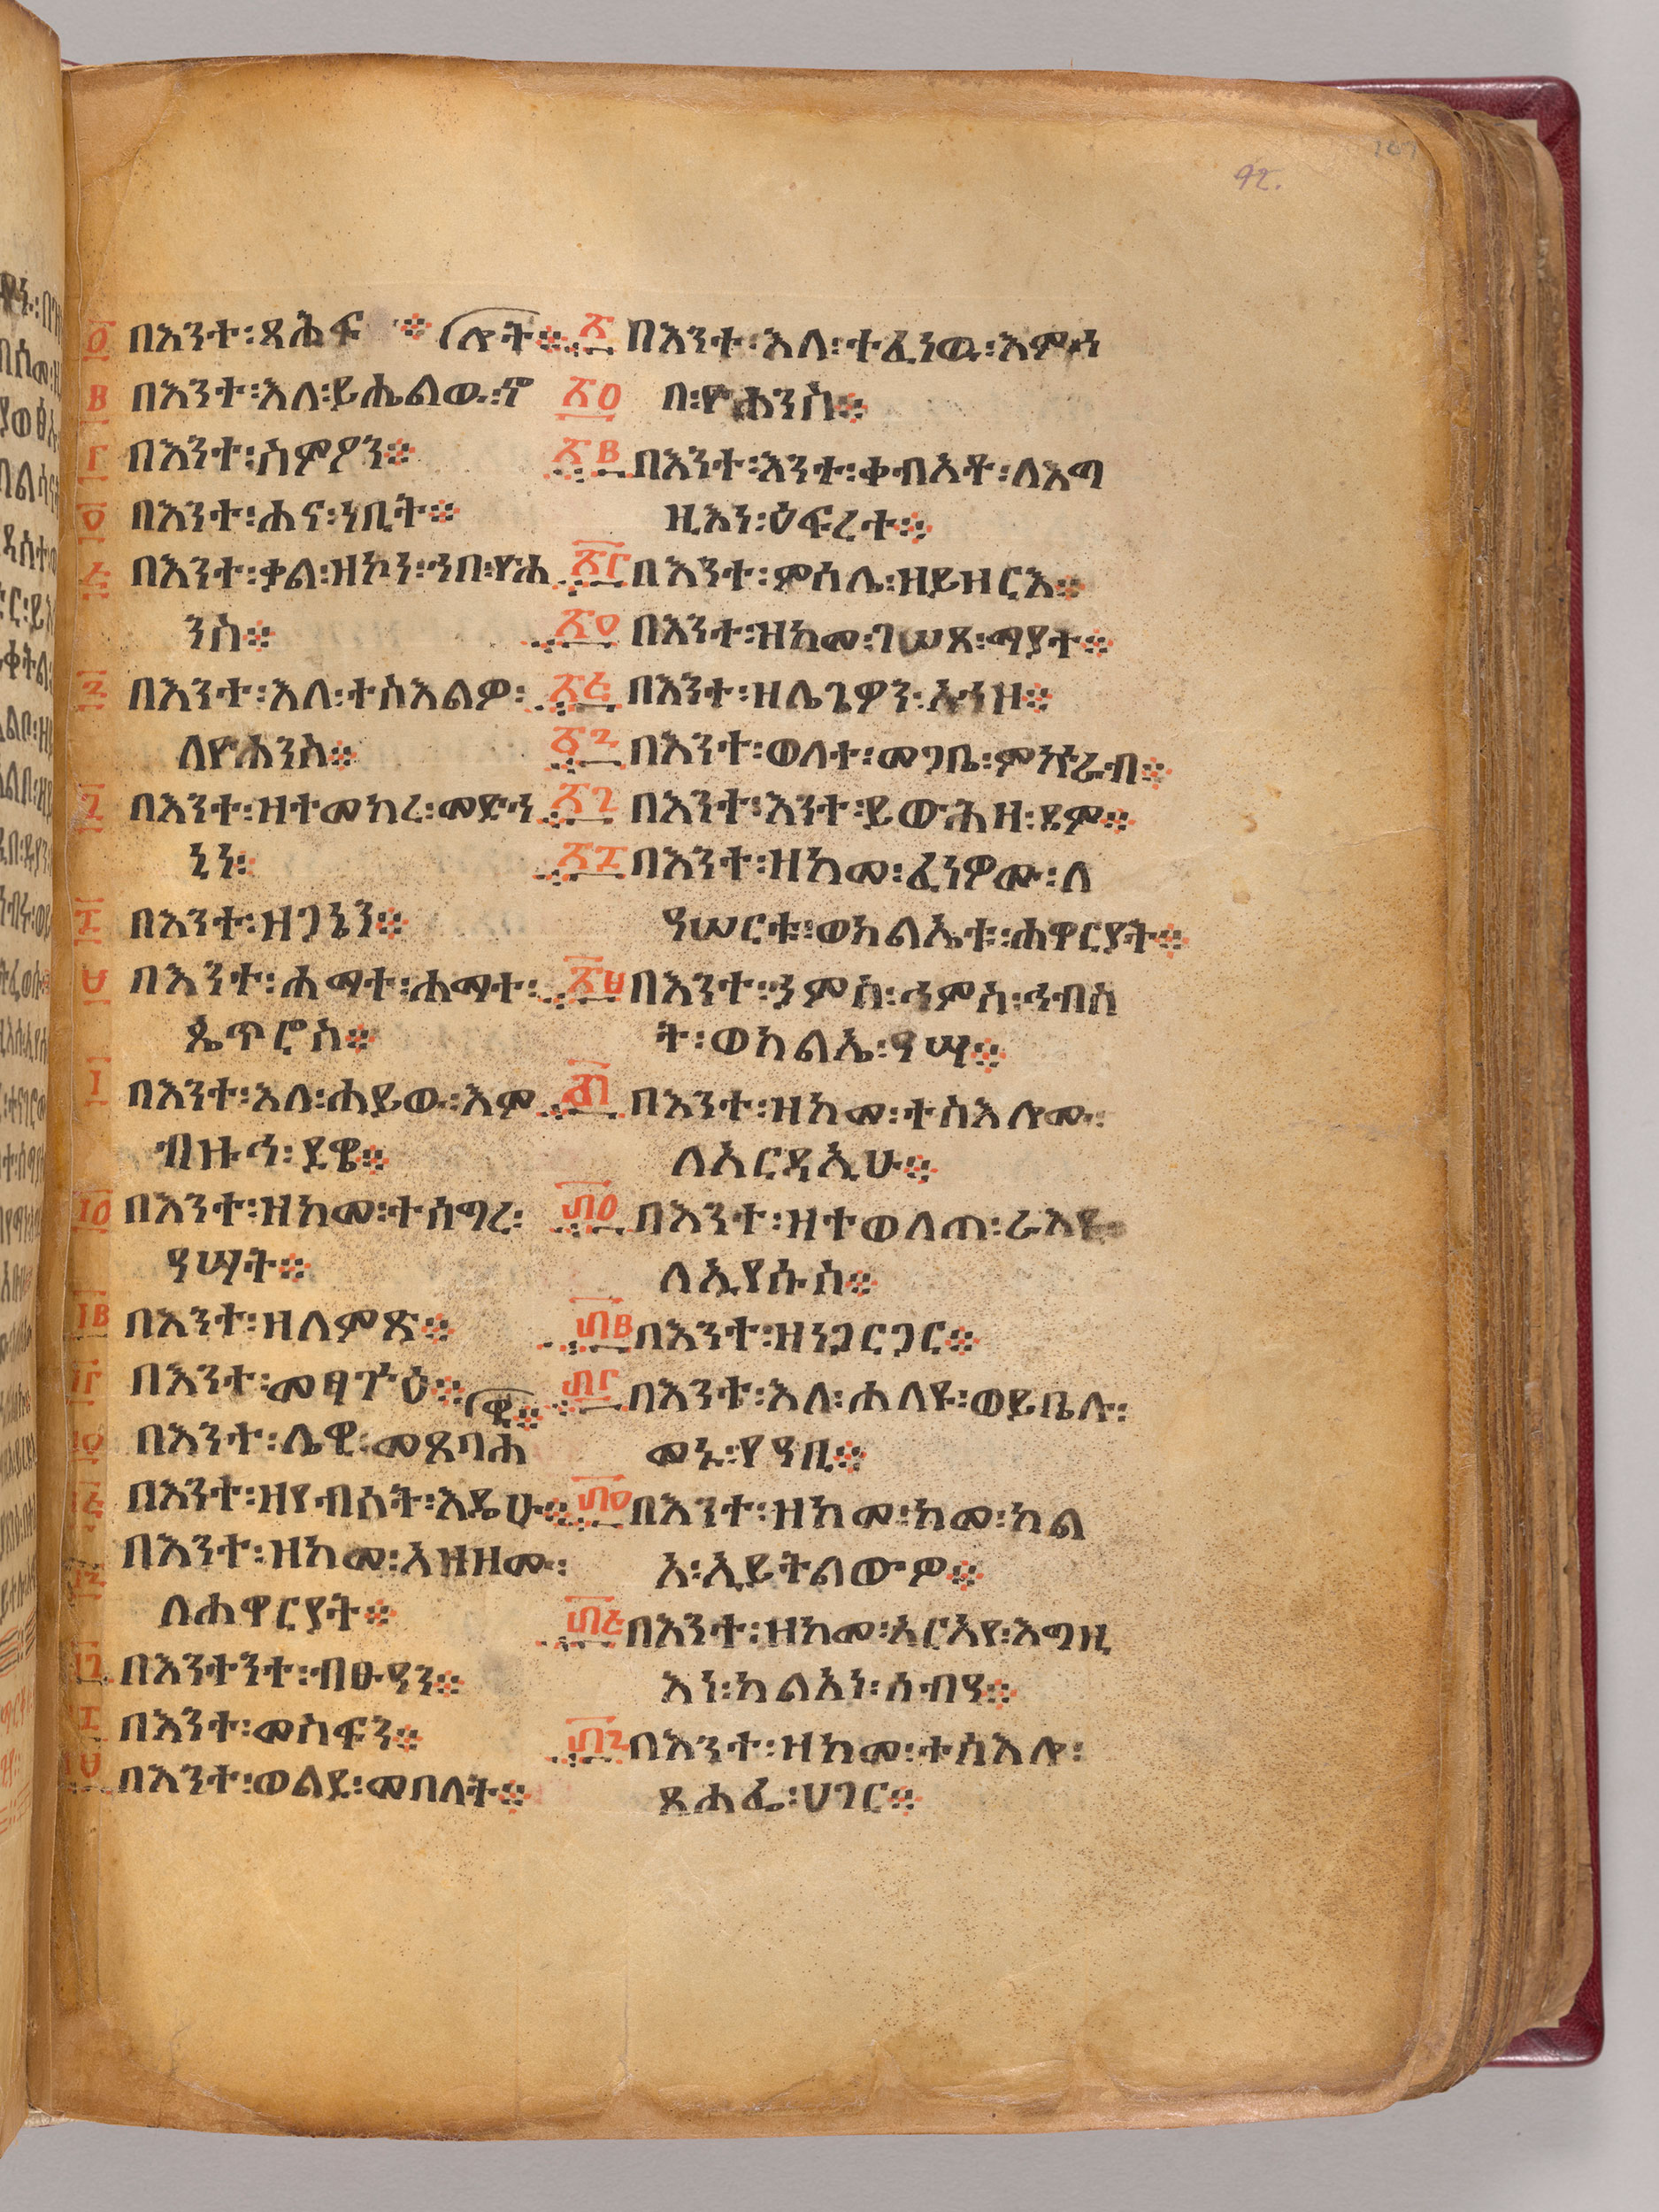 92.
፩ በእንተ፡ጻሕፍ ፨ ሎት፨
፪ በእንተ፡እለ፡ይሔልው፡ኖ
፫ በእንተ፡ስምዖን፨
፬ በእንተ፡ሐና፡ነቢት፨
፭ በእንተ፡ቃል፡ዝኮነ፡ኀበ፡ዮሐ
ንስ፨
፮ በእንተ፡እለ፡ተስእልዎ፡
ለዮሐንስ፨
፯ በእንተ፡ዝተመከረ፡መድኀ
ኒነ፡
፰ በእንተ፡ዘጋኔን፨
፱ በእንተ፡ሐማተ፡ሐማተ፡
ጴጥሮስ፨
፲ በእንተ፡እለ፡ሐይው፡እም
ብዙኅ፡ደዌ፨
፲፩ በእንተ፡ዝከመ፡ተሰግረ፡
ዓሣት፨
፲፪ በእንተ፡ዘለምጽ፨
፲፫ በእንተ፡መፃጉዕ፨
፲፬ በእንተ፡ሌዊ፡መጸባሐ ዊ፨
፲፭ በእንተ፡ዘየብሰት፡እዴሁ፨
፲፮ በእንተ፡ዘከመ፡አዘዘሙ፡
ለሐዋርያት፨
፲፯ በእንተንተ፡ብፁዓን፨
፲፰ በእንተ፡መስፍን፨
፲፱ በእንተ፡ወልደ፡መበለት፨
፳ በእንተ፡እለ፡ተፈነዉ፡እምኀ
፳፩ በ፡ዮሐንስ፨
፳፪ በእንተ፡እንተ፡ቀብአቶ፡ለእግ
ዚእነ፡ዕፍረተ፨
፳፫ በእንተ፡ምሳሌ፡ዘይዘርእ፨
፳፬ በእንተ፡ዝከመ፡ገሠጸ፡ማያተ፨
፳፭ በእንተ፡ዘሌጌዎን፡አኀዘ፨
፳፮ በእንተ፡ወለተ፡መጋቤ፡ምኵራብ፨
፳፯ በእንተ፡እንተ፡ይውሕዘ፡ደም፨
፳፰ በእንተ፡ዘከመ፡ፈነዎሙ፡ለ
ዓሠርቱ፡ወክልኤቱ፡ሐዋርያት፨
፳፱ በእንተ፡ኀምስ፡ኀምስ፡ኅብስ
ት፡ወክልኤ፡ዓሣ፨
፴ በእንተ፡ዘከመ፡ተስእሎሙ፡
ለአርዳኢሁ፨
፴፩ በእንተ፡ዘተወለጠ፡ራእዩ፡
ለኢየሱስ፨
፴፪ በእንተ፡ዘነጋርጋር፨
፴፫ በእንተ፡እለ፡ሐለዩ፡ወይቤሉ፡
መኑ፡የዓቢ፨
፴፬ በእንተ፡ዘከመ፡ከመ፡ከል
አ፡ኢይትልውዎ፨
፴፭ በእንተ፡ዘከመ፡አርአየ፡እግዚ
እነ፡ካልአነ፡ሰብዓ፨
፴፮ በእንተ፡ዘከመ፡ተስእሎ፡
ጸሐፌ፡ሀገር፨